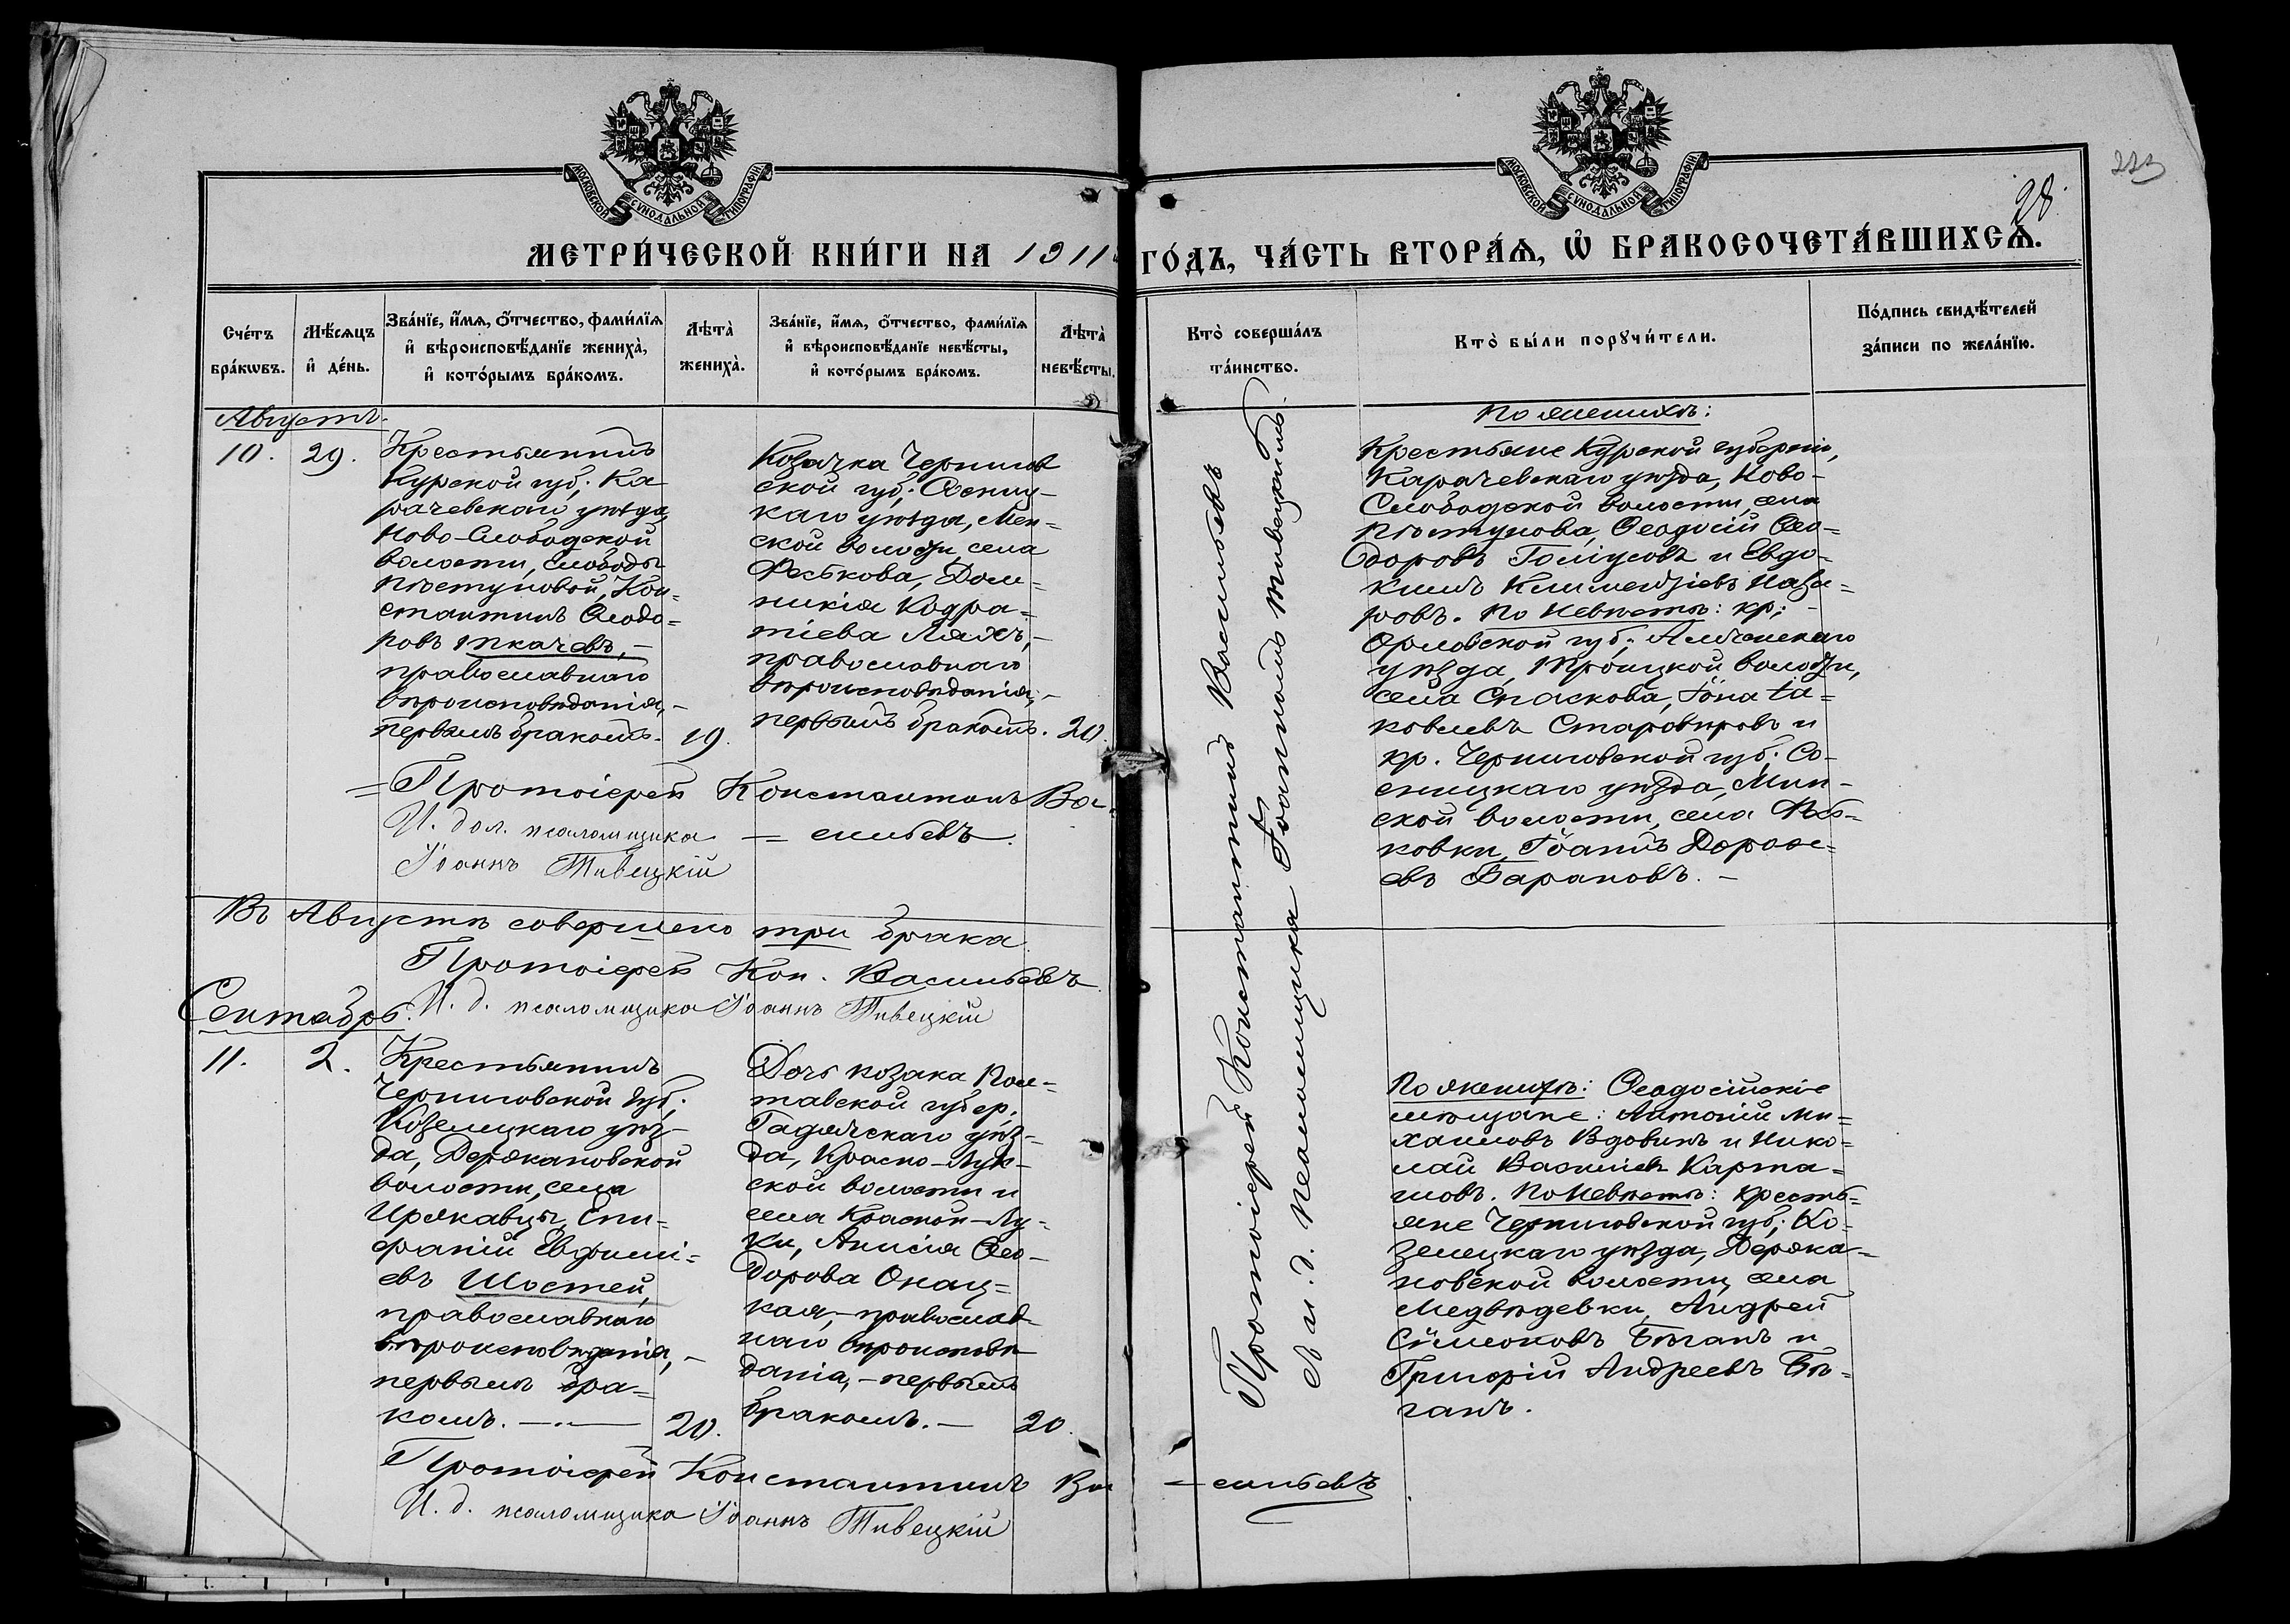 223
28.
МОСКОВСКОЙ СѴНОДАЛЬНОЙ ТИПОГРАФІИ
МОСКОВСКОЙ СѴНОДАЛЬНОЙ ТИПОГРАФІИ
МЕТРИ́ЧЕСКОЙ КНИ́ГИ НА 1911 ГО́ДЪ, ЧА́СТЬ ВТОРА́Ѧ, Ѽ БРАКОСОЧЕТА́ВШИХСѦ.
Сче́тъ
бра́кѡвъ.
Мѣ́сѧцъ
и҆ де́нь.
Зва́нїе, и҆́мѧ, ѻ҆́тчество, фами́лїѧ
и҆ вѣроисповѣ́данїе жениха̀,
и҆ кото́рымъ бра́комъ.
Лѣта̀
жениха̀.
Зва́нїе, и҆́мѧ, ѻ҆́тчество, фами́лїѧ
и҆ вѣроисповѣ́данїе невѣ́сты,
и҆ кото́рымъ бра́комъ.
Лѣта̀
невѣ́сты.
Кто̀ соверша́лъ
та́инство.
Кто̀ бы́ли порꙋчи́тели.
По́дпись свидѣ́телей
за́писи по жела́нїю.
Августъ.
10.
29.
Крестьянинъ
Курской губ; Ка
рачевскаго уѣзда,
Ново-Слободской
волости, слободы
Пѣстуновой, Кон-
стантинъ Ѳеодо=
ровъ Ткачевъ, –
православнаго
вѣроисповѣданія, –
первымъ бракомъ.
19.
Козачка Чернигов
ской губ; Сосниц-
каго уѣзда, Мен=
ской волости, села
Феськова, Дом=
никія Кодра=
тіева Ляхъ, –
православнаго
вѣроисповѣданія, –
первымъ бракомъ.
20.
По женихѣ:
Крестьяне Курской губерніи,
Карачевскаго уѣзда, Ново-
Слободской волости, села
Пѣстунова, Ѳеодосій Ѳео=
доровъ Голіусовъ и Евдо-
кимъ Климентіевъ Наза=
ровъ. По Невѣстѣ: кр; –
Орловской губ;
уѣзда, Троицкой волости,
села Спаскова, Іона Іа=
ковлевъ Старовѣровъ и
кр. Черниговской губ; Со-
сницкаго уѣзда, Мин-
ской волости, села
ковки, Іоаннъ Дорофе=
евъ Барановъ. –
= Протоіерей Константинъ Ва-
= сильевъ.
И. дол. псаломщика
Іоаннъ Тивецкій
Въ Августѣ совершено три брака.
Протоіерей Кон. Васильевъ.
И. д. псаломщика Іоаннъ Тивецкій
Сентябрь.
11.
2.
Крестьянинъ
Черниговской губ.
Козелецкаго уѣз-
да, Держановской
волости, села
Иржавца, Епи=
фаній Евфимі=
евъ Шостей,
православнаго
вѣроисповѣданія, –
первымъ бра=
комъ. –
20.
Дочь козака, Пол-
тавской губер.
Гадячскаго уѣз-
да, Красно-Лук-
ской волости и
села Красной-Лу-
ки, Анисія Ѳео-
дорова Онац=
кая, – православ
наго вѣроисповѣ
данія, – первымъ
бракомъ. –
20.
Протоіерей Константинъ Васильевъ
и и. д. псаломщика Іоаннъ Тивецкій.
По женихѣ: Ѳеодосійскіе
мѣщане: Антоній Ми=
хаиловъ Вдовинъ и Нико=
лай Василіевъ Карта=
шовъ. По Невѣстѣ: кресть=
яне Черниговской губ; Ко-
зелецкаго уѣзда, Держа=
новской волости, села
Медвѣдевки, Андрей
Симеоновъ Бѣганъ и
Григорій Андреевъ Бѣ-
ганъ.
Протоіерей Константинъ Ва
– сильевъ
И. д. псаломщика Іоаннъ Тивецкій